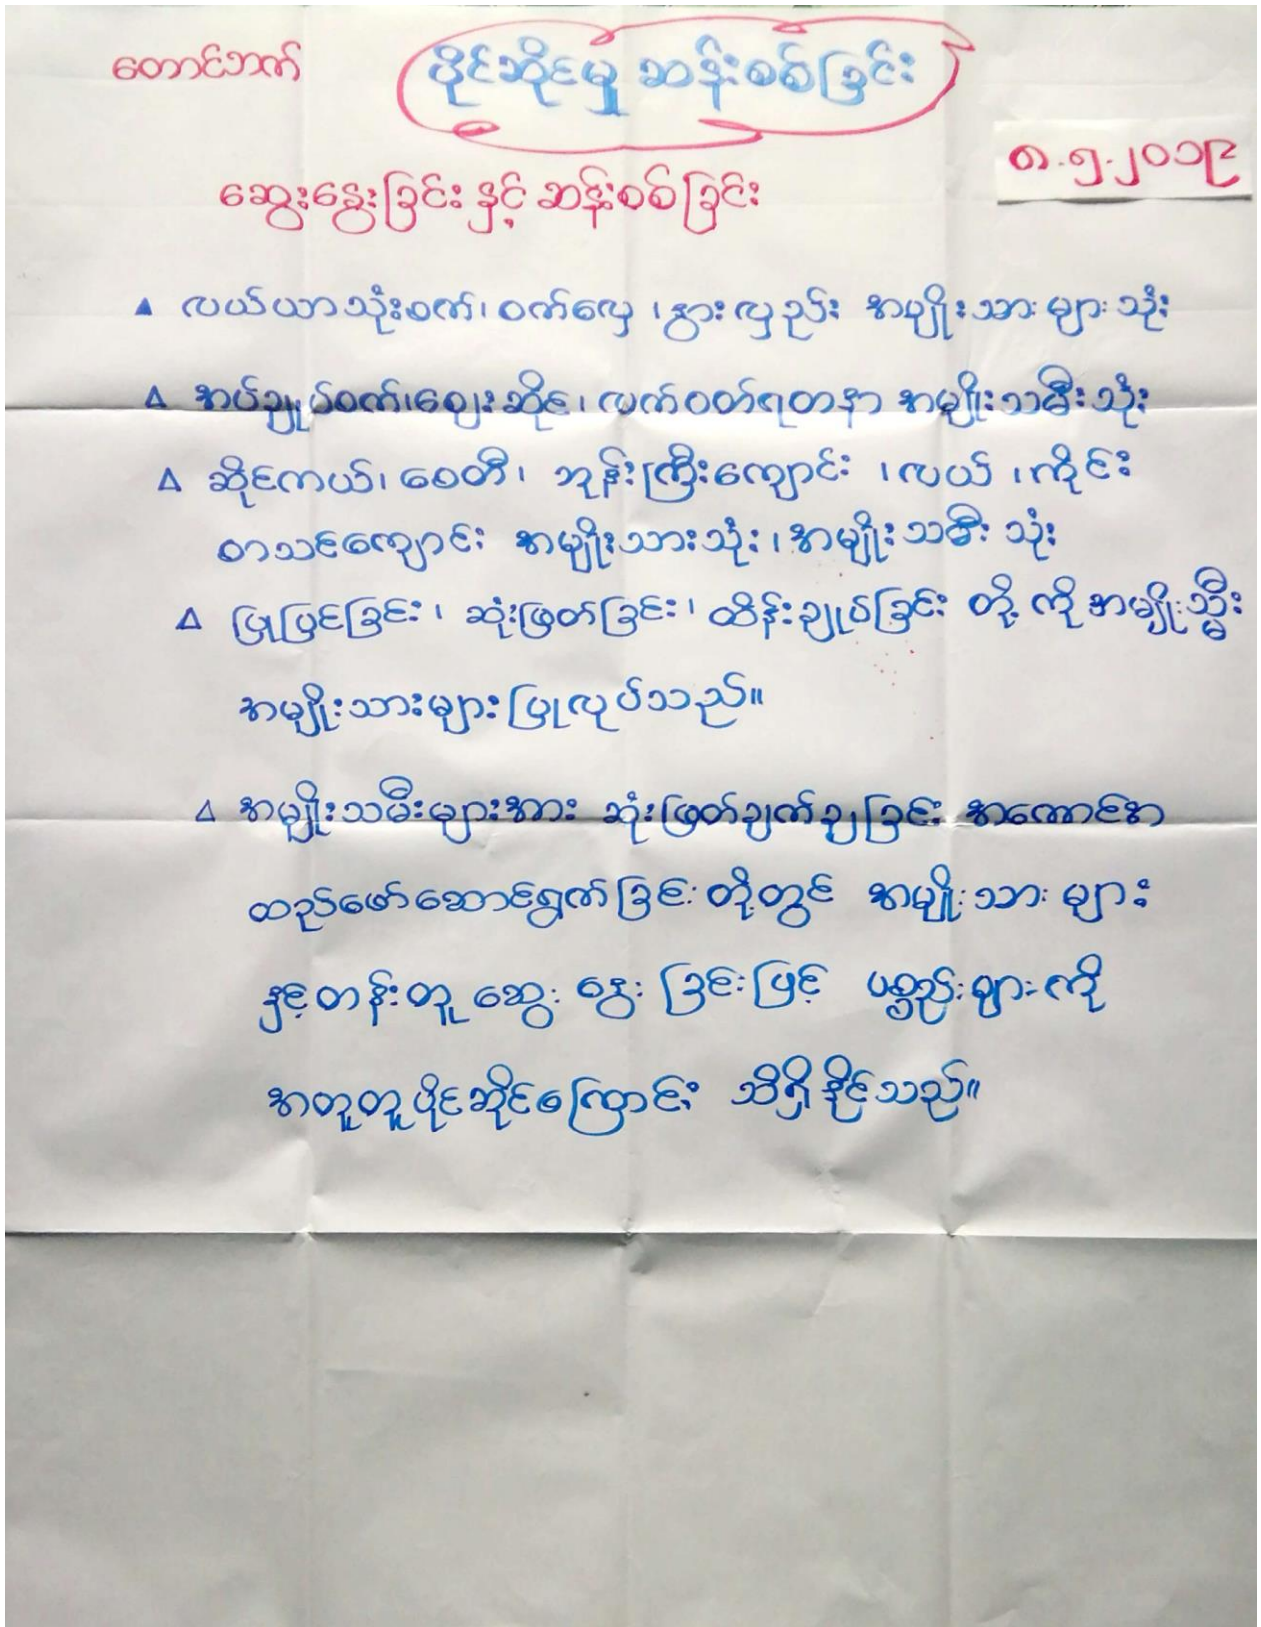 တောင်ဘက်
ပိုင်ဆိုင်မှု ဆန်းစစ်ခြင်း
၈.၅.၂၀၁၉
ဆွေးနွေးခြင်း နှင့် ဆန်းစစ်ခြင်း
▲ လယ်ယာသုံးစက်၊ စက်လှေ ၊ နွားလှည်း အမျိုးသားများသုံး
△ အပ်ချုပ်စက်၊ ဈေးဆိုင်၊ လက်ဝတ်ရတနာ အမျိုးသမီးသုံး
△ ဆိုင်ကယ်၊ စေတီ၊ ဘုန်းကြီးကျောင်း ၊ လယ် ၊ ကိုင်း
စာသင်ကျောင်း အမျိုးသားသုံး ၊ အမျိုးသမီး သုံး
△ ပြုပြင်ခြင်း ၊ ဆုံးဖြတ်ခြင်း ၊ ထိန်းချုပ်ခြင်း တို့ ကို အမျိုးသ္မီး
အမျိုးသားများ ပြုလုပ်သည်။
△ အမျိုးသမီးများအား ဆုံးဖြတ်ချက်ချခြင်း အကောင်အ
ထည်ဖော်ဆောင်ရွက်ခြင်း တို့တွင် အမျိုးသား များ
နှင့်တန်းတူ ဆွေး နွေး ခြင်းဖြင့် ပစ္စည်းများကို
အတူတူပိုင်ဆိုင်ကြောင်း သိရှိနိုင်သည်။